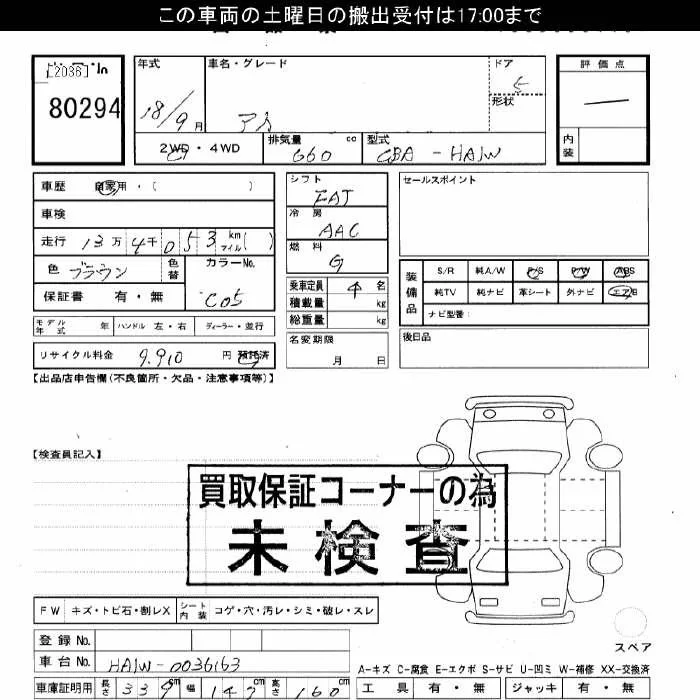 この車両の土曜日の搬出受付は17:00まで
[2036]
80294
年式 18/9月
車名・グレード
ドア 5
形状
評価点
内装
2WD・4WD
排気量 660 cc
型式 CBA-HA1W
車歴 自家用・( )
車検
走行 13万4千053 km マイル( )
色 ブラウン 色替
カラーNo. C05
保証書 有・無
シフト FAT
冷房 AAC
燃料 G
乗車定員 4名
積載量 kg
総重量 kg
セールスポイント
装備品
S/R 純A/W P/S P/W ABS
純TV 純ナビ 革シート 外ナビ エアB
ナビ型番:
モデル年式 年 ハンドル 左・右 ディーラー・並行
名変期限 月 日
後日品
リサイクル料金 9,910 円 預託済
【出品店申告欄(不良箇所・欠品・注意事項等)】
【検査員記入】
買取保証コーナーの為
未検査
FW キズ・トビ石・割レX シート内装 コゲ・穴・汚レ・シミ・破レ・スレ
スペア
登録No.
車台No. HA1W-0036163
A-キズ C-腐食 E-エクボ S-サビ U-凹ミ W-補修 XX-交換済
車庫証明用 長さ 339cm 幅 147cm 高さ 160cm
工具 有・無 ジャッキ 有・無